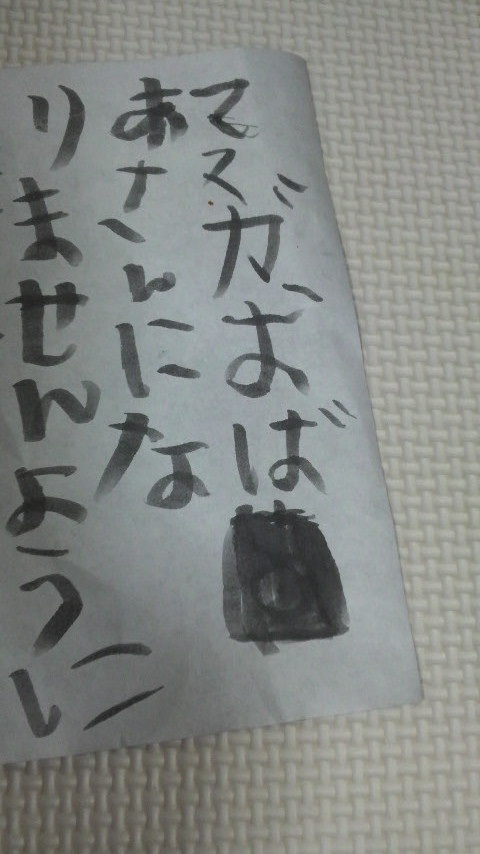 ママガおば
あさんにな
りませんように